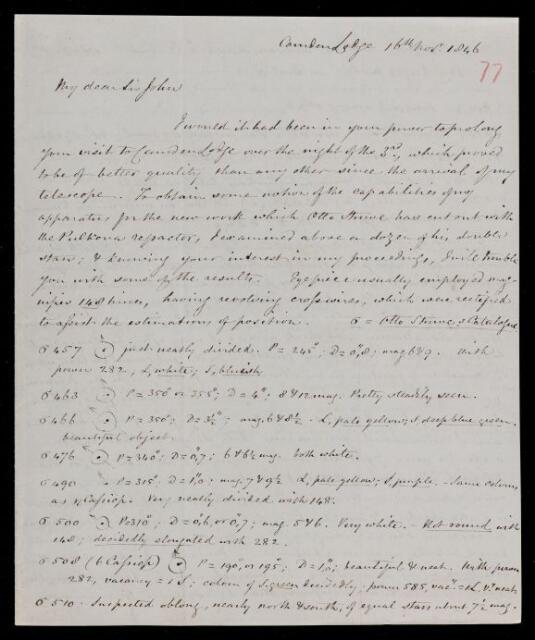 Camden Lodge 16th Nov. 1846
77
My dear Sir John
I would it had been in your power to prolong
your visit to Camden Lodge over the night of the 3rd, which proved
to be of better quality than any other since the arrival of my
telescope. To obtain some notion of the capabilities of my
apparatus for the new work which Otto Struve has cut out with
the Pulkova refractor, I examined above a dozen of his double
stars; & knowing your interest in my proceedings, I will trouble
you with some of the results. Eyepiece usually employed mag-
nifies 148 times, having revolving crosswires, which were rectified
to assist the estimations of position. σ = Otto Struve's Catalogue
σ 457 just neatly divided. P = 245°; D = 0",8; mag 6 & 9. With
power 282, L, white; S, bluish.
σ 463 P = 350° or 355°; D = 4"; 8 & 12 mag. Pretty steadily seen.
σ 466 P = 350°; D = 3½"; mag. 6 & 8½ - L, pale yellow; S deep blue green.
beautiful object.
σ 476 P = 340°; D = 0",7; 6 & 6½ mag. both white.
σ 490 P = 315°; D = 1",0; mag. 7 & 9½ L, pale yellow; S, purple. - Same colours
as η Cassiop. Very neatly divided with 148.
σ 500 P = 310°; D = 0",6, or 0",7; mag. 5 & 6. Very white. - Not round with
148; decidedly elongated with 282.
σ 508 (6 Cassiop) P = 190° or 195°; D = 1",0; beautiful & neat. With power
282, vacancy = 1 S; colour of S green decidedly; power 585, vac. = 1 L, v. neat.
σ 510 - Suspected oblong, nearly north & south, of equal stars about 7½ mag.